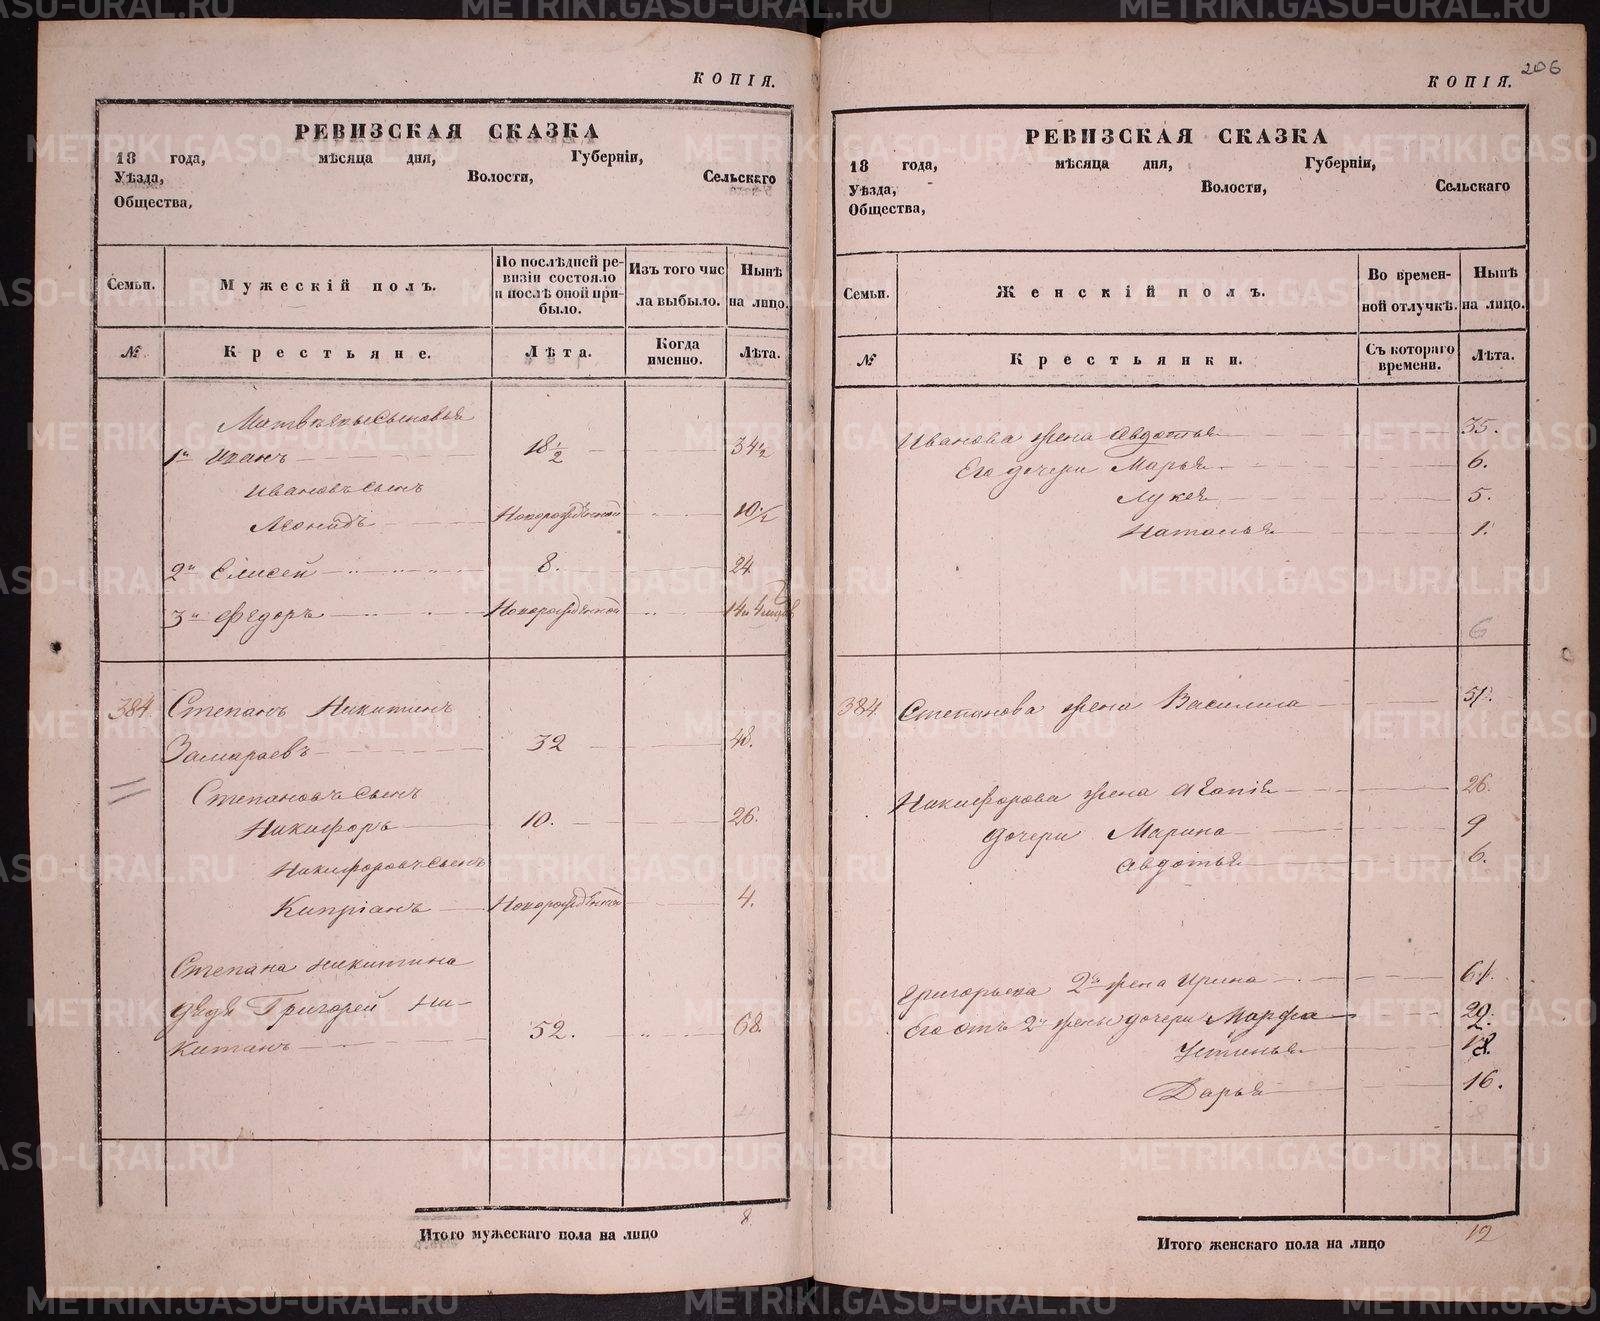 КОПІЯ.
РЕВИЗСКАЯ СКАЗКА
18 года, мѣсяца дня, Губерніи,
Уѣзда, Волости, Сельскаго
Общества,
Семьи. Мужескій полъ. По послѣдней ревизіи состояло и послѣ оной прибыло. Изъ того числа выбыло. Нынѣ на лицо.
№ Крестьяне. Лѣта. Когда именно. Лѣта.
Матвѣевы сыновья
1й Иванъ 18 1/2 34 1/2
Ивановъ сынъ
Леонидъ Новорожденной 10 1/2
2й Елисей 8. 24
3й Федоръ Новорожденной 14 и 4 месяцов
384 Степанъ Никитинъ
Замараевъ 32 48.
Степановъ сынъ
Никифоръ 10. 26.
Никифоровъ сынъ
Кипріанъ Новорожденной 4.
Степана Никитина
дядя Григорей Ни-
китинъ 52. 68.
4
Итого мужескаго пола на лицо 8
206
КОПІЯ.
РЕВИЗСКАЯ СКАЗКА
18 года, мѣсяца дня, Губерніи,
Уѣзда, Волости, Сельскаго
Общества,
Семьи. Женскій полъ. Во временной отлучкѣ. Нынѣ на лицо.
№ Крестьянки. Съ котораго времени. Лѣта.
Иванова жена Авдотья 35.
Его дочери Марья 6.
Лукея 5.
Наталья 1.
6
384 Степанова жена Василиса 51.
Никифорова жена Агапія 26.
дочери Марина 9
Авдотья 6.
Григорьева 2я жена Ирина 61.
Его отъ 2й жены дочери Марфа 29.
Устинья
Дарья 16.
8
Итого женскаго пола на лицо 12
METRIKI.GASO-URAL.RU